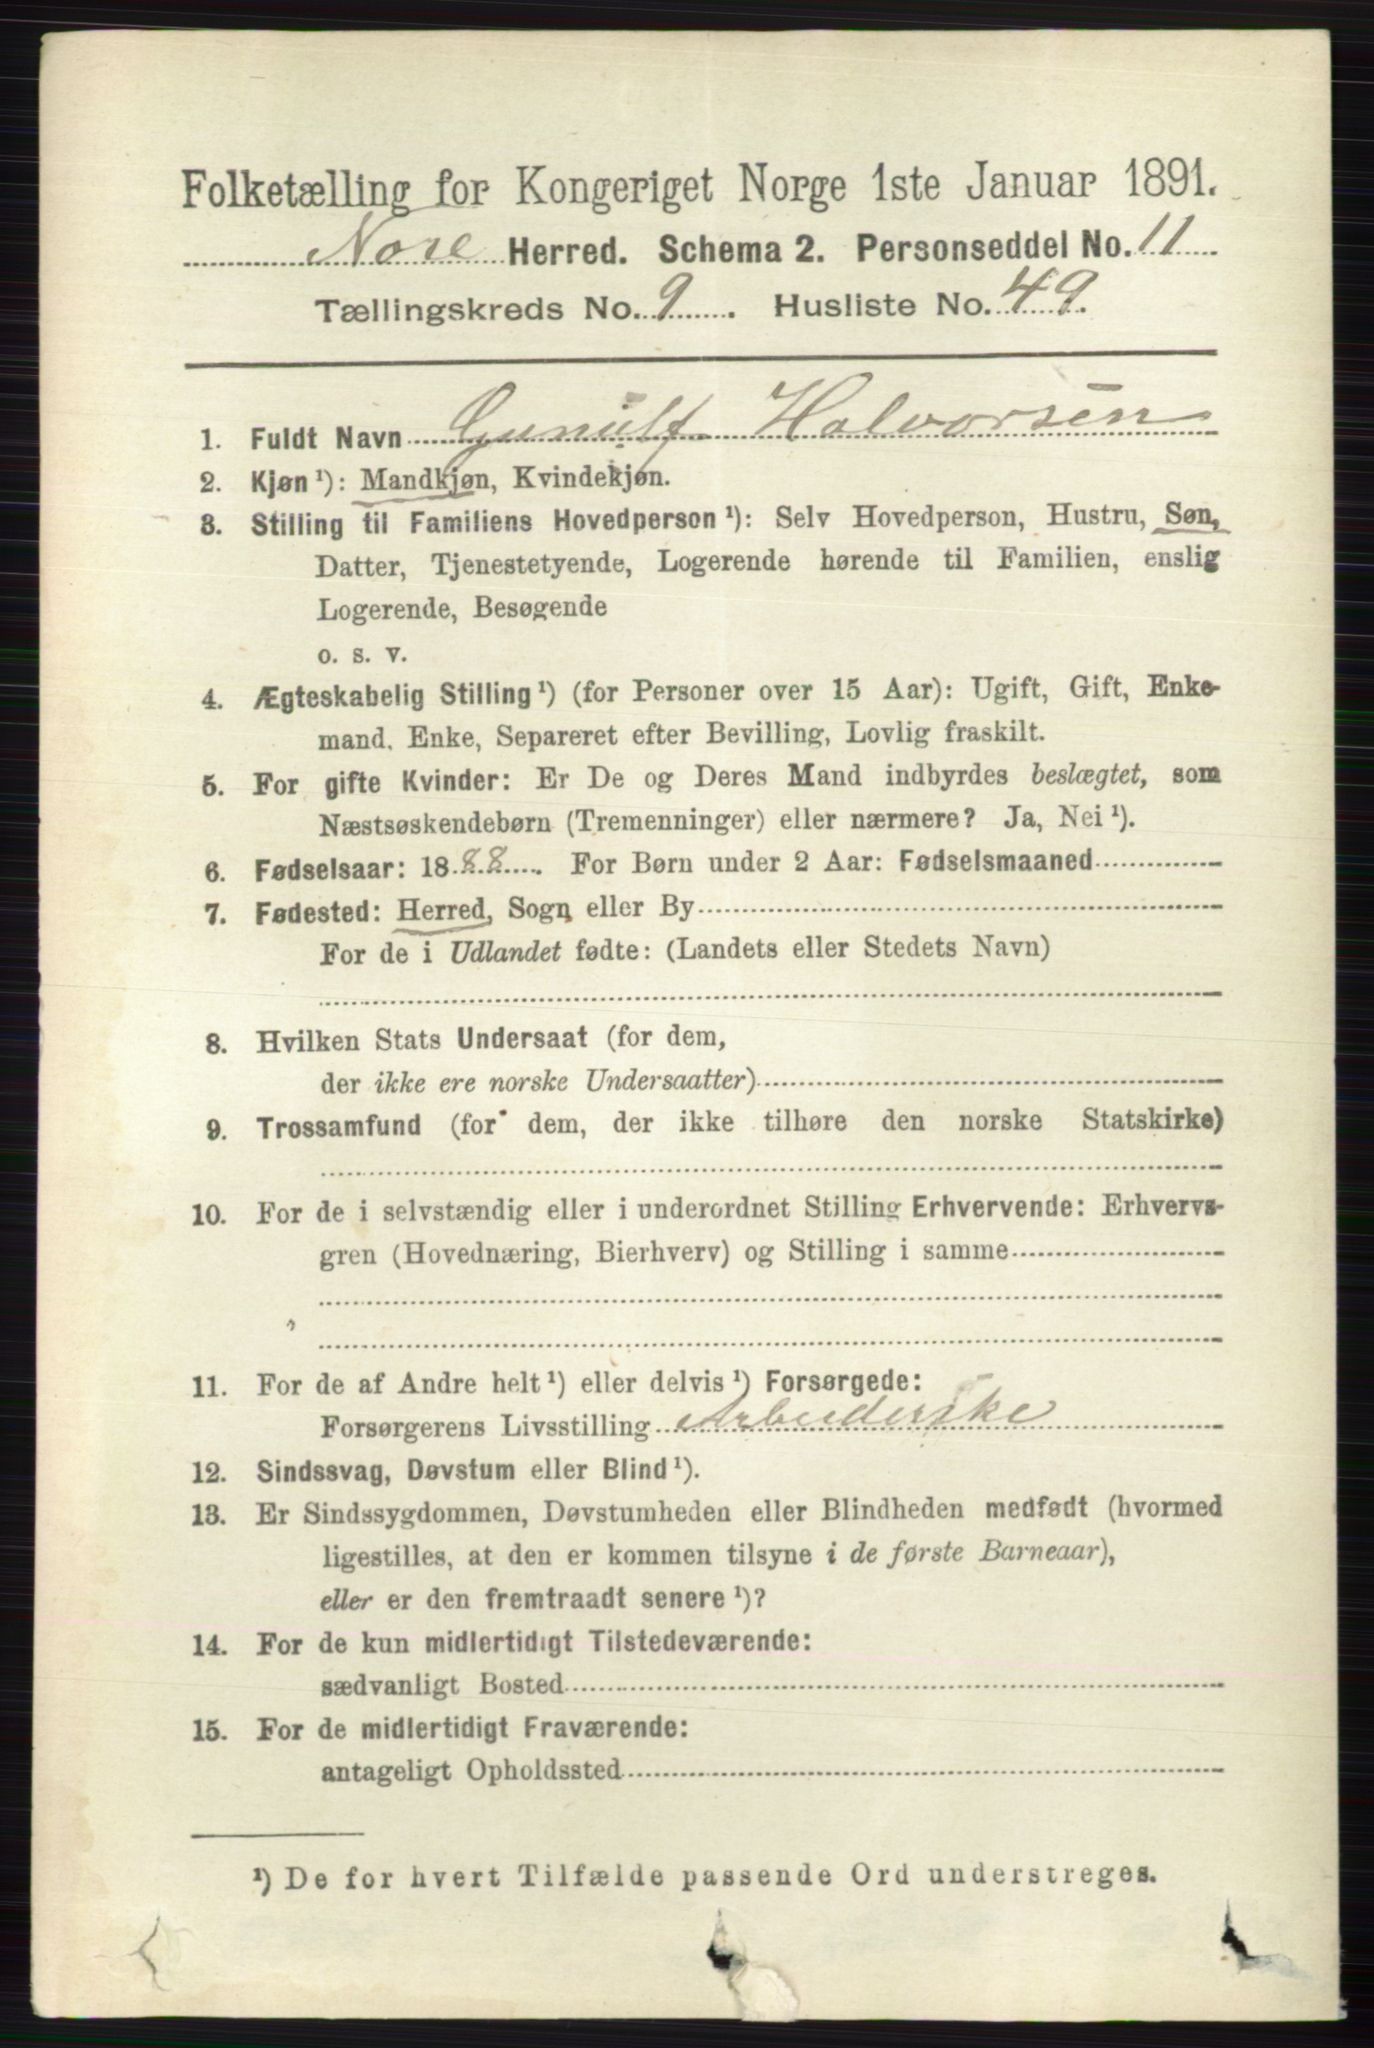 Folketælling for Kongeriget Norge 1ste Januar 1891.
Nore Herred. Schema 2. Personseddel No. 11
Tællingskreds No. 9. Husliste No. 49.
1. Fuldt Navn Gunulf Halvorsen
2. Kjøn ¹): Mandkjøn, Kvindekjøn.
3. Stilling til Familiens Hovedperson ¹): Selv Hovedperson, Hustru, Søn,
Datter, Tjenestetyende, Logerende hørende til Familien, enslig
Logerende, Besøgende
o. s. v.
4. Ægteskabelig Stilling ¹) (for Personer over 15 Aar): Ugift, Gift, Enke-
mand, Enke, Separeret efter Bevilling, Lovlig fraskilt.
5. For gifte Kvinder: Er De og Deres Mand indbyrdes beslægtet, som
Næstsøskendebørn (Tremenninger) eller nærmere? Ja, Nei ¹).
6. Fødselsaar: 1888. For Børn under 2 Aar: Fødselsmaaned
7. Fødested: Herred, Sogn eller By
For de i Udlandet fødte: (Landets eller Stedets Navn)
8. Hvilken Stats Undersaat (for dem,
der ikke ere norske Undersaatter)
9. Trossamfund (for dem, der ikke tilhøre den norske Statskirke)
10. For de i selvstændig eller i underordnet Stilling Erhvervende: Erhvervs-
gren (Hovednæring, Bierhverv) og Stilling i samme
11. For de af Andre helt ¹) eller delvis ¹) Forsørgede:
Forsørgerens Livsstilling Arbeiderske
12. Sindssvag, Døvstum eller Blind ¹).
13. Er Sindssygdommen, Døvstumheden eller Blindheden medfødt (hvormed
ligestilles, at den er kommen tilsyne i de første Barneaar),
eller er den fremtraadt senere ¹)?
14. For de kun midlertidigt Tilstedeværende:
sædvanligt Bosted
15. For de midlertidigt Fraværende:
antageligt Opholdssted
¹) De for hvert Tilfælde passende Ord understreges.